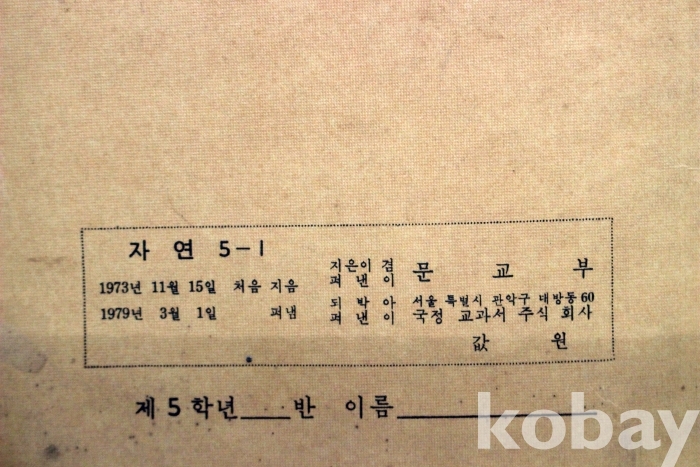 자 연 5-1
1973년 11월 15일 처음 지음
1979년 3월 1일 펴냄
지은이 겸
펴 낸 이 문 교 부
되 박 아 서울 특별시 관악구 대방동 60
펴 낸 이 국정 교과서 주식 회사
값 원
제 5 학년___반 이름__________
kobay